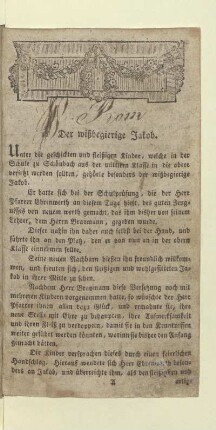 Der wißbegierige Jakob.
Unter die geschickten und fleißigen Kinder, welche in der
Schule zu Schönbach aus der mittlern Klasse in die obere
versetzt werden sollten, gehörte besonders der wißbegierige
Jakob.
Er hatte sich bey der Schulprüfung, die der Herr
Pfarrer Ehrenwerth an diesem Tage hielt, des guten Zeug-
nisses von neuem werth gemacht, das ihm bisher von seinem
Lehrer, dem Herrn Bravmann, gegeben wurde.
Dieser nahm ihn daher auch selbst bey der Hand, und
führte ihn an den Platz, den er von nun an in der obern
Klasse einnehmen sollte.
Seine neuen Nachbarn hießen ihn freundlich willkom-
men, und freuten sich, den fleißigen und wohlgesitteten Ja-
kob in ihre Mitte zu haben.
Nachdem Herr Bravmann diese Versetzung noch mit
mehreren Kindern vorgenommen hatte, so wünschte der Herr
Pfarrer ihnen allen dazu Glück, und ermahnte sie, ihre
neue Stelle mit Ehre zu behaupten, ihre Aufmerksamkeit
und ihren Fleiß zu verdoppeln, damit sie in den Kenntnissen
weiter geführt werden könnten, worin sie bisher den Anfang
gemacht hätten.
Die Kinder versprachen dieses durch einen feierlichen
Handschlag. Hierauf wendete sich Herr Ehrenwerth beson-
ders an Jakob, und überreichte ihm, als den fleißigsten und
A
artige